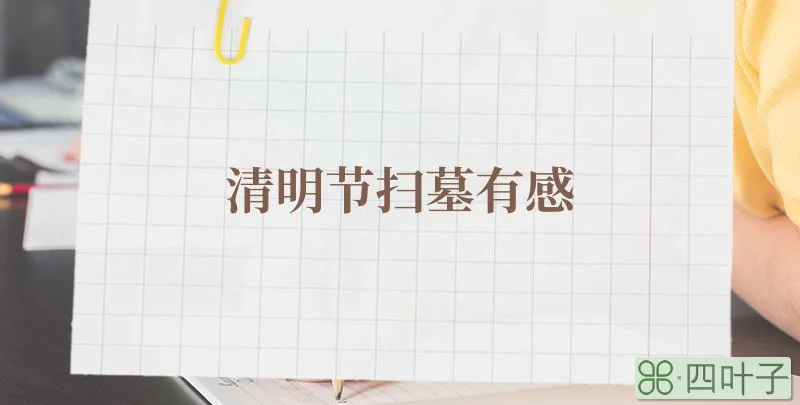 清明节扫墓有感
四叶子